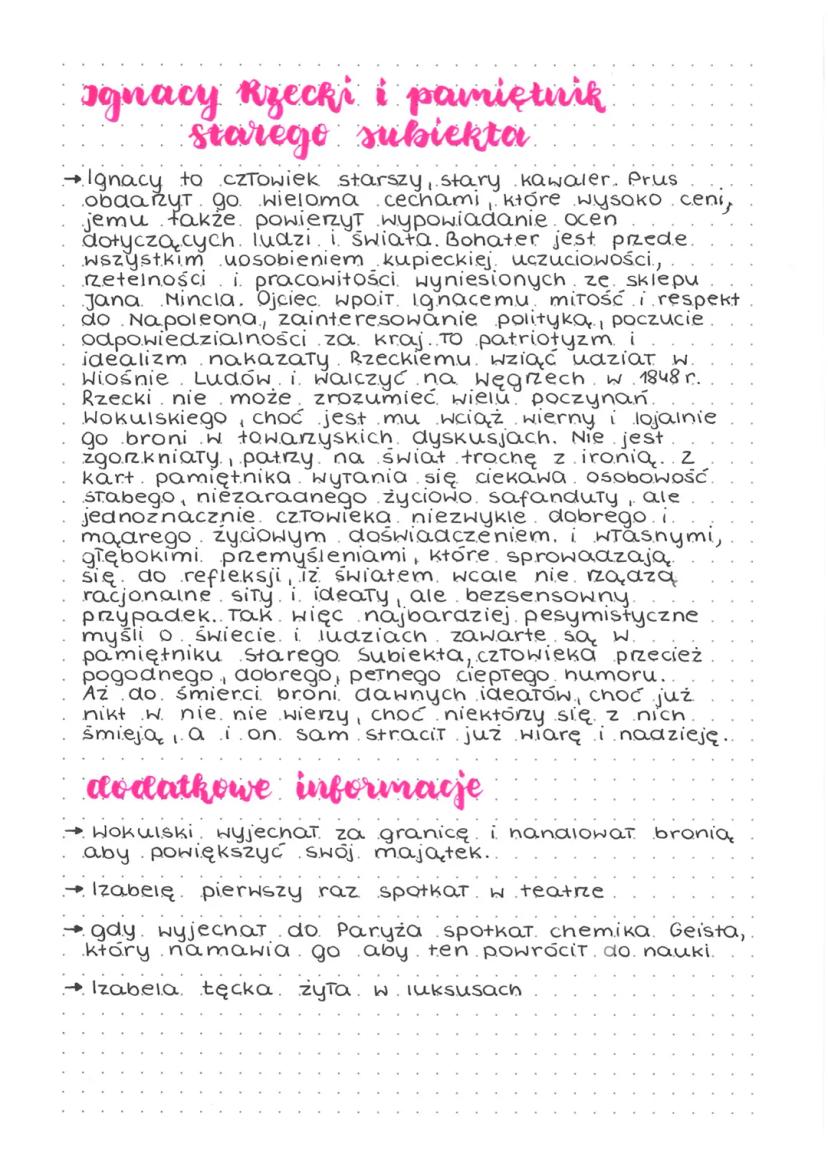 Ignacy Rzecki i pamiętnik
starego subiekta
→ Ignacy to człowiek starszy, stary kawaler. Prus
obdarzył go wieloma cechami, które wysoko ceni,
jemu także powierzył wypowiadanie ocen
dotyczących ludzi i świata. Bohater jest przede
wszystkim uosobieniem kupieckiej uczuciowości,
rzetelności i pracowitości wyniesionych ze sklepu
Jana Mincla. Ojciec wpoił Ignacemu miłość i respekt
do Napoleona, zainteresowanie polityką, poczucie
odpowiedzialności za kraj. To patriotyzm i
idealizm nakazały Rzeckiemu wziąć udział w
Wiośnie Ludów i walczyć na Węgrzech w 1848 r.
Rzecki nie może zrozumieć wielu poczynań
Wokulskiego, choć jest mu wciąż wierny i lojalnie
go broni w towarzyskich dyskusjach. Nie jest
zgorzkniały, patrzy na świat trochę z ironią. Z
kart pamiętnika wyłania się ciekawa osobowość
słabego, niezaradnego życiowo safanduły, ale
jednoznacznie człowieka niezwykle dobrego i
mądrego życiowym doświadczeniem i własnymi,
głębokimi przemyśleniami, które sprowadzają
się do refleksji, iż światem wcale nie rządzą
racjonalne siły i ideały, ale bezsensowny
przypadek. Tak więc najbardziej pesymistyczne
myśli o świecie i ludziach zawarte są w
pamiętniku Starego Subiekta, człowieka przecież
pogodnego, dobrego, pełnego ciepłego humoru.
Aż do śmierci broni dawnych ideałów, choć już
nikt w nie nie wierzy, choć niektórzy się z nich
śmieją, a i on sam stracił już wiarę i nadzieję.
dodatkowe informacje
→ Wokulski wyjechał za granicę i handlował bronią
aby powiększyć swój majątek.
→ Izabelę pierwszy raz spotkał w teatrze
→ gdy wyjechał do Paryża spotkał chemika Geista,
który namawia go aby ten powrócił do nauki
→ Izabela Łęcka żyła w luksusach